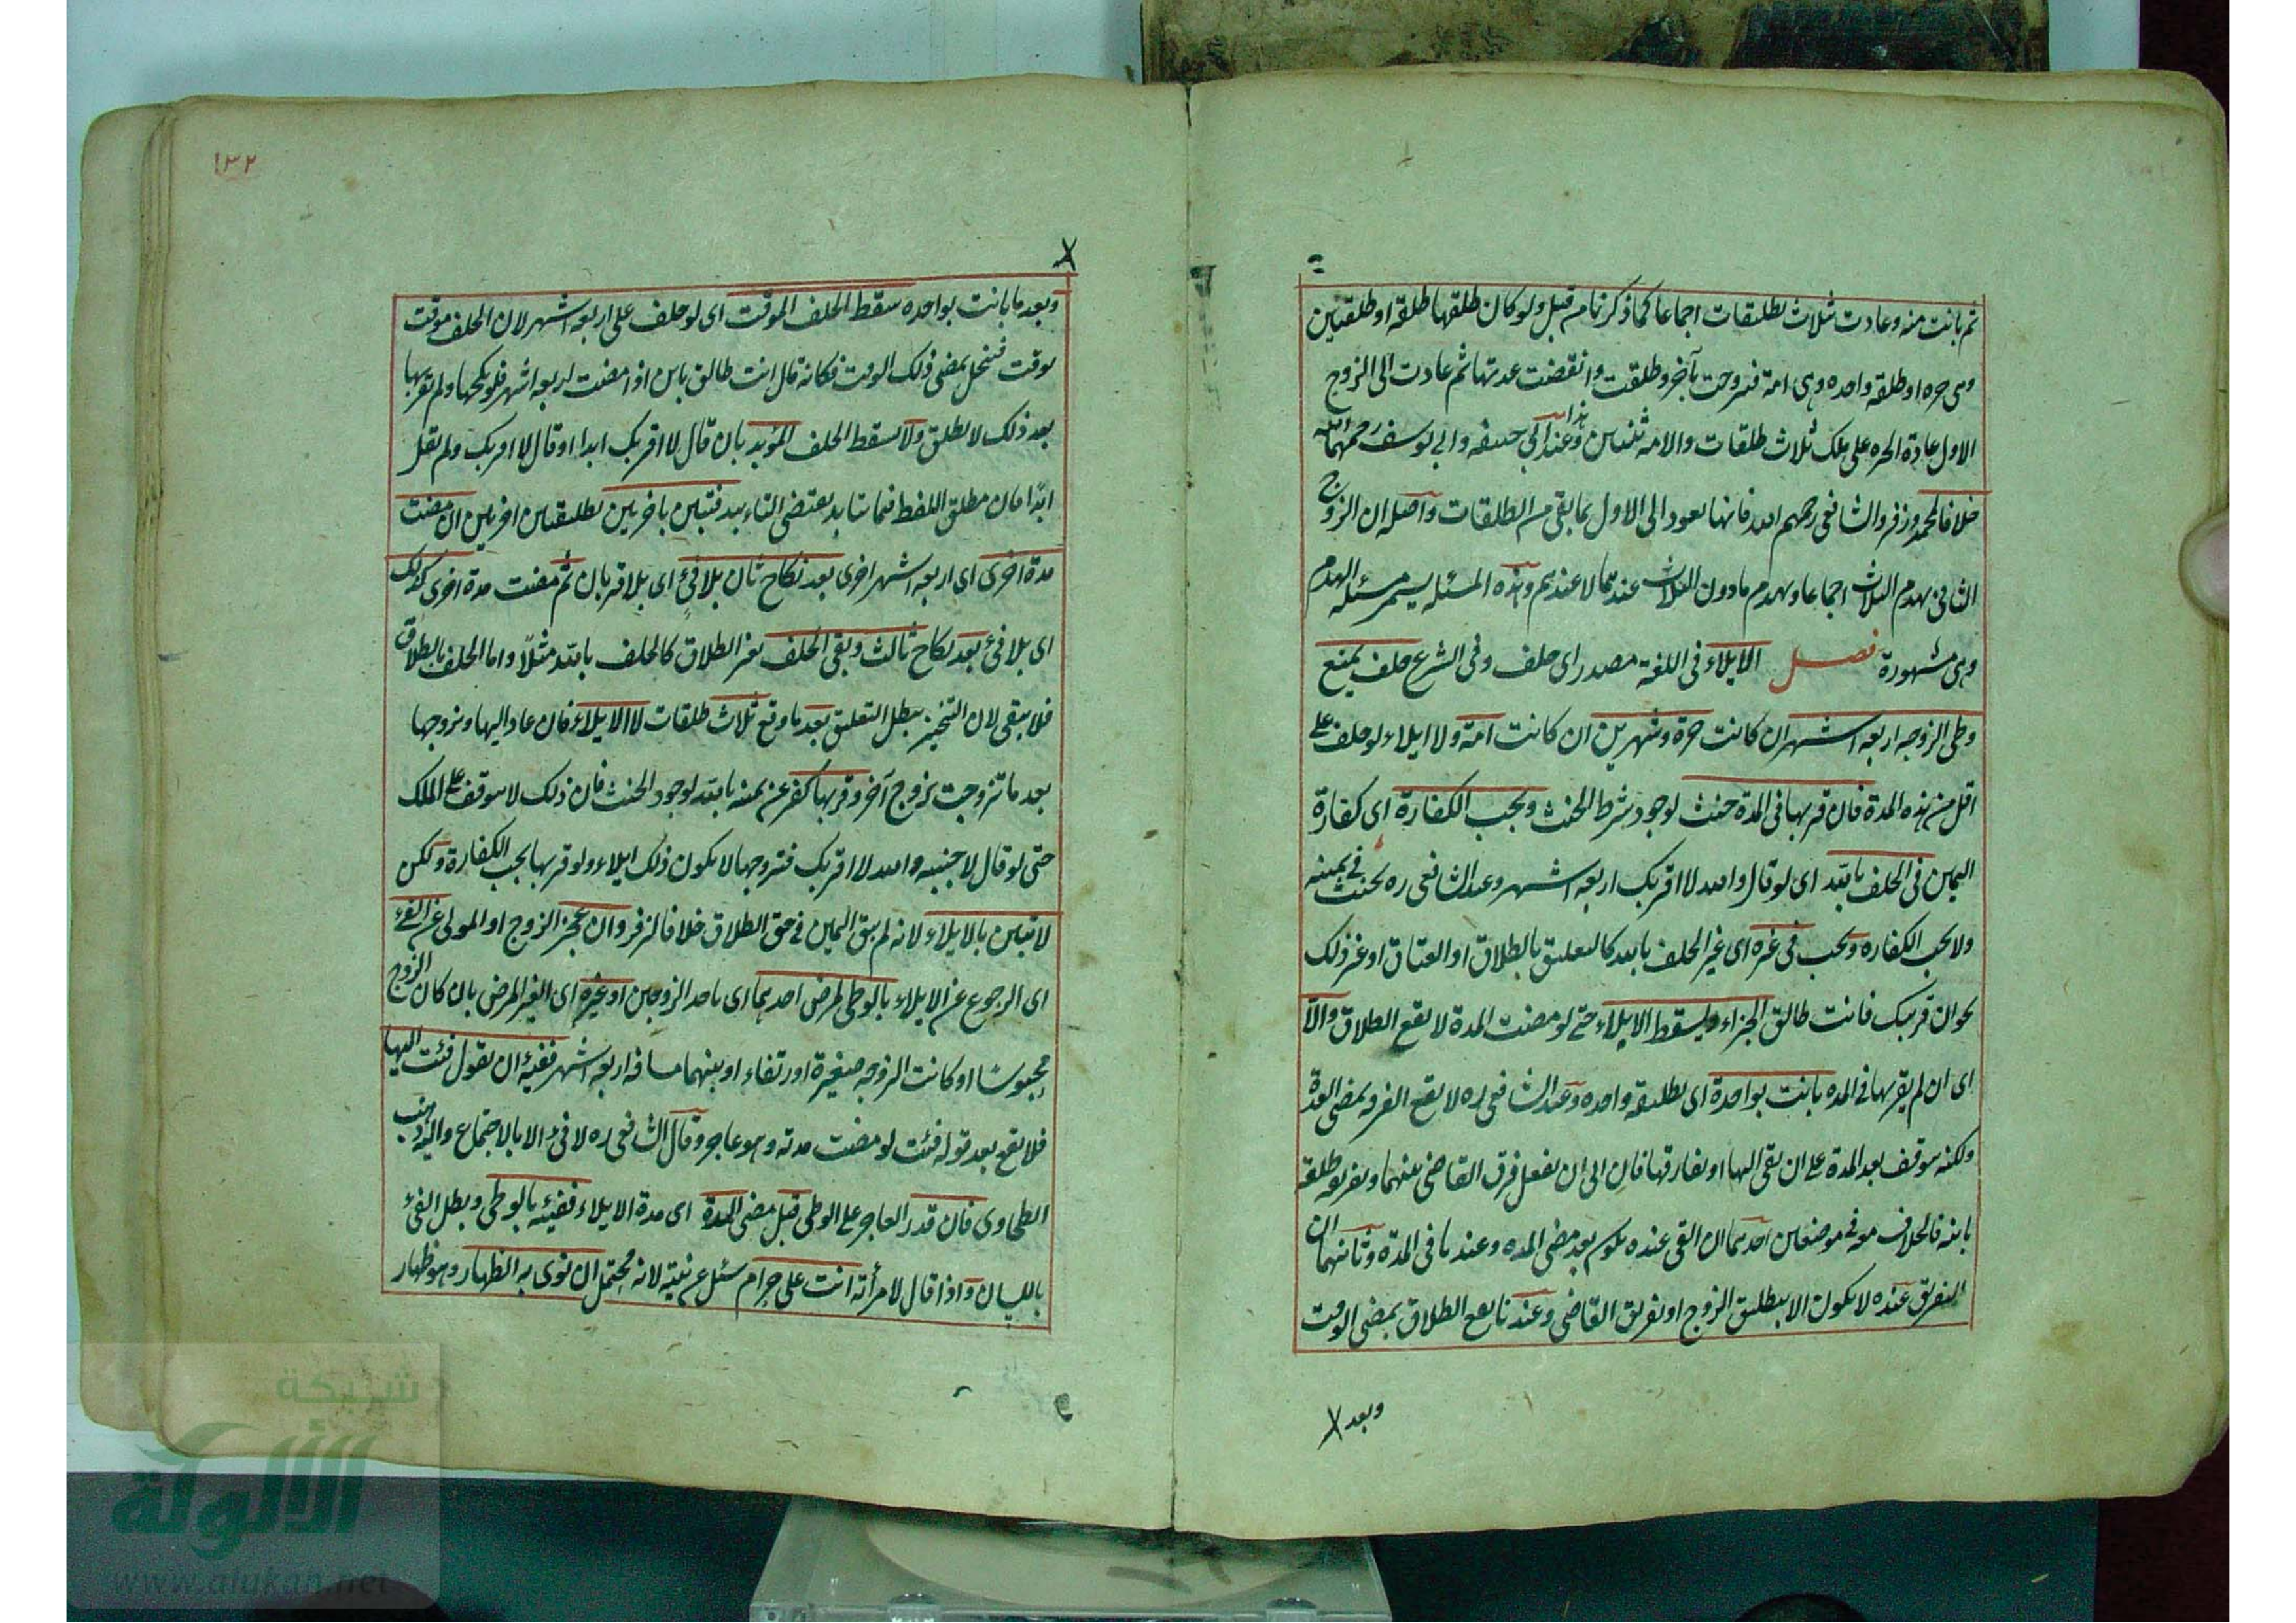 ثم بانت منه وعادت بثلاث تطليقات اجماعا كما ذكرنا من قبل ولو كان طلقها طلقة او طلقتين
وهى حره او طلقه واحده وهى امة فتزوجت بآخر وطلقت وانقضت عدتها ثم عادت الى الزوج
الاول عادة الحره على ملك ثلاث طلقات والامه ثنتين وهذا عند ابى حنيفه وابى يوسف رحمهما الله
خلافا لمحمد وزفر والشافعى رحمهم الله فانها تعود الى الاول بما بقى من الطلقات واصله ان الزوج
الثانى يهدم الثلاث اجماعا ويهدم ما دون الثلاث عندهما لا عندهم وهذه المسئله يسمى مسئله الهدم
وهى مشهورة فصل الايلاء فى اللغة مصدر اى حلف وفى الشرع حلف يمنع
وطى الزوجه اربعه اشهر ان كانت حرة وشهرين ان كانت امة ولا ايلاء لو حلف على
اقل من هذه المدة فان قربها فى المدة حنث لوجود شرط الحنث ويجب الكفارة اى كفارة
اليمين فى الحلف بالله اى لو قال والله لا اقربك اربعه اشهر وعند الشافعى ره يحنث فى يمينه
ولا يجب الكفاره ويجب فى غيره اى غير الحلف بالله كالتعليق بالطلاق او العتاق او غير ذلك
نحو ان قربتك فانت طالق الجزاء ويسقط الايلاء حتى لو مضت المدة لا يقع الطلاق والا
اى ان لم يقربها فى المده بانت بواحدة اى بطليقه واحده وعند الشافعى ره لا يقع الفرقه بمضى المدة
ولكنه يتوقف بعد المدة على ان يفى اليها او يفارقها فان ابى ان يفعل فرق القاضى بينهما وتفريقه طلقه
باينه فالخلاف معه فى موضعين احدهما ان الفى عنده يكون بعد مضى المده وعندنا فى المدة وثانيهما ان
التفريق عنده لا يكون الا بتطليق الزوج او تفريق القاضى وعندنا يقع الطلاق بمضى الوقت
وبعد
١٣٢
وبعد ما بانت بواحده سقط الحلف الموقت اى لو حلف على اربعه اشهر لان الحلف موقت
بوقت فينحل بمضى ذلك الوقت فكانه قال انت طالق باين اذا مضت اربعه اشهر فلو نكحها ولم يقربها
بعد ذلك لا تطلق ولا يسقط الحلف المؤبد بان قال لا اقربك ابدا او قال لا اقربك ولم يقل
ابدا فان مطلق اللفظ فيما يتابد يقتضى التاءبيد فتبين باخريين بطليقتين اخريين ان مضت
مدة اخرى اى اربعه اشهر اخرى بعد نكاح ثان بلا فئ اى بلا قربان ثم مضت مدة اخرى كذلك
اى بلا فئ بعد نكاح ثالث وبقى الحلف بغير الطلاق كالحلف بالله مثلا واما الحلف بالطلاق
فلا يبقى لان التنجيز يبطل التعليق بعد ما وقع ثلاث طلقات لا الايلاء فان عاد اليها وتزوجها
بعد ما تزوجت بزوج آخر وقربها كفر عن يمينه بالله لوجود الحنث فان ذلك لا يتوقف على الملك
حتى لو قال لاجنبيه والله لا اقربك فتزوجها لا يكون ذلك ايلاء ولو قربها يجب الكفارة ولكن
لا تبين بالايلاء لانه لم يبق اليمين فى حق الطلاق خلافا لزفر وان عجز الزوج او المولى عن الفئ
اى الرجوع عن الايلاء بالوطى لمرض احدهما اى باحد الزوجين او غيره اى الغير المرض بان كان الزوج
محبوسا او كانت الزوجه صغيرة او رتقاء او بينهما مسافه اربعه اشهر ففيئه ان يقول فئت اليها
فلا يقع بعد قوله فئت لو مضت مدته وهو عاجز وقال الشافعى ره لا فئ الا بالاجتماع واليه ذهب
الطحاوى فان قدر العاجز على الوطى قبل مضى المدة اى مدة الايلاء ففيئه بالوطى وبطل الفئ
باللسان واذا قال لامرأته انت على حرام سئل عن نيته لانه محتمل ان نوى به الظهار وهو ظهار
شبكة
الألوكة
www.alukah.net